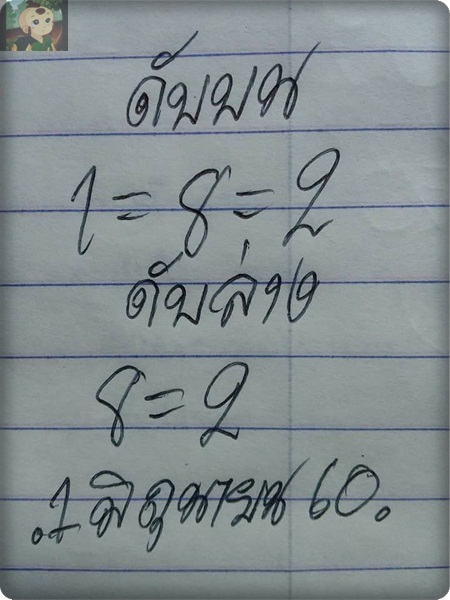 ดับบน
1=8=2
ดับล่าง
8=2
.1 มิถุนายน 60.